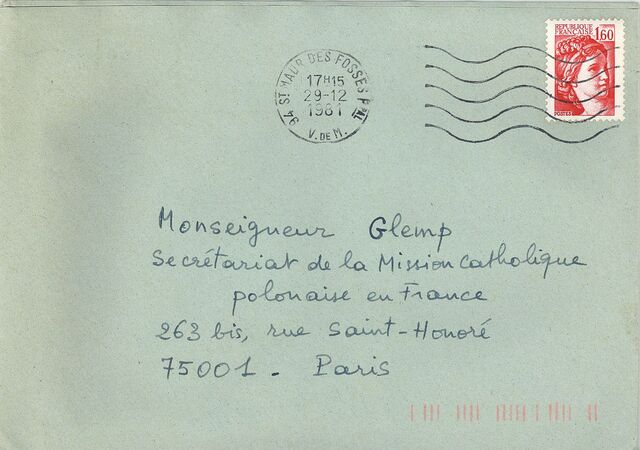 REPUBLIQUE FRANÇAISE 1,60
POSTES
94 ST MAUR DES FOSSES PPAL
17H15
29-12
1981
V. DE M.
Monseigneur Glemp
Secrétariat de la Mission Catholique
polonaise en France
263 bis, rue Saint-Honoré
75001 - Paris